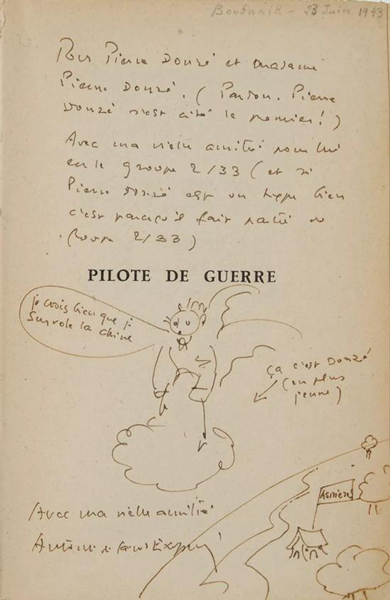 Boufarik - 23 Juin 1943
Pour Pierre Donzé et madame
Pierre Donzé. (Pardon. Pierre
Donzé n'est cité le premier!)
Avec ma vieille amitié pour lui
et le groupe 2/33 (et si
Pierre Donzé est un type bien
c'est parcequ'il fait partie du
Groupe 2/33)
PILOTE DE GUERRE
je crois bien que je
survole la chine
ça c'est Donzé
(en plus
jeune)
Asnières
Avec ma vieille amitié
Antoine de Saint Exupéry